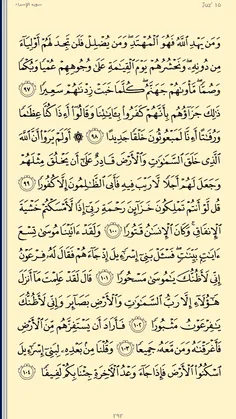 سورة الإسراء Juz' 15
وَمَن يَهۡدِ ٱللَّهُ فَهُوَ ٱلۡمُهۡتَدِۖ وَمَن يُضۡلِلۡ فَلَن تَجِدَ لَهُمۡ أَوۡلِيَآءَ
مِن دُونِهِۦۖ وَنَحۡشُرُهُمۡ يَوۡمَ ٱلۡقِيَٰمَةِ عَلَىٰ وُجُوهِهِمۡ عُمۡيٗا وَبُكۡمٗا
وَصُمّٗاۖ مَّأۡوَىٰهُمۡ جَهَنَّمُۖ كُلَّمَا خَبَتۡ زِدۡنَٰهُمۡ سَعِيرٗا ٩٧
ذَٰلِكَ جَزَآؤُهُم بِأَنَّهُمۡ كَفَرُواْ بِـَٔايَٰتِنَا وَقَالُوٓاْ أَءِذَا كُنَّا عِظَٰمٗا
وَرُفَٰتًا أَءِنَّا لَمَبۡعُوثُونَ خَلۡقٗا جَدِيدًا ٩٨ ۞ أَوَلَمۡ يَرَوۡاْ أَنَّ ٱللَّهَ
ٱلَّذِي خَلَقَ ٱلسَّمَٰوَٰتِ وَٱلۡأَرۡضَ قَادِرٌ عَلَىٰٓ أَن يَخۡلُقَ مِثۡلَهُمۡ
وَجَعَلَ لَهُمۡ أَجَلٗا لَّا رَيۡبَ فِيهِ فَأَبَى ٱلظَّٰلِمُونَ إِلَّا كُفُورٗا ٩٩
قُل لَّوۡ أَنتُمۡ تَمۡلِكُونَ خَزَآئِنَ رَحۡمَةِ رَبِّيٓ إِذٗا لَّأَمۡسَكۡتُمۡ خَشۡيَةَ
ٱلۡإِنفَاقِۚ وَكَانَ ٱلۡإِنسَٰنُ قَتُورٗا ١٠٠ وَلَقَدۡ ءَاتَيۡنَا مُوسَىٰ تِسۡعَ
ءَايَٰتِۭ بَيِّنَٰتٖۖ فَسۡـَٔلۡ بَنِيٓ إِسۡرَٰٓءِيلَ إِذۡ جَآءَهُمۡ فَقَالَ لَهُۥ فِرۡعَوۡنُ
إِنِّي لَأَظُنُّكَ يَٰمُوسَىٰ مَسۡحُورٗا ١٠١ قَالَ لَقَدۡ عَلِمۡتَ مَآ أَنزَلَ
هَٰٓؤُلَآءِ إِلَّا رَبُّ ٱلسَّمَٰوَٰتِ وَٱلۡأَرۡضِ بَصَآئِرَ وَإِنِّي لَأَظُنُّكَ
يَٰفِرۡعَوۡنُ مَثۡبُورٗا ١٠٢ فَأَرَادَ أَن يَسۡتَفِزَّهُم مِّنَ ٱلۡأَرۡضِ
فَأَغۡرَقۡنَٰهُ وَمَن مَّعَهُۥ جَمِيعٗا ١٠٣ وَقُلۡنَا مِنۢ بَعۡدِهِۦ لِبَنِيٓ إِسۡرَٰٓءِيلَ
ٱسۡكُنُواْ ٱلۡأَرۡضَ فَإِذَا جَآءَ وَعۡدُ ٱلۡأٓخِرَةِ جِئۡنَا بِكُمۡ لَفِيفٗا ١٠٤
٢٩٢